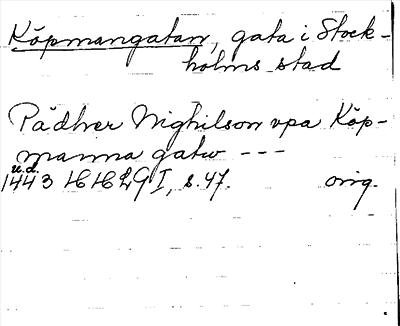 Köpmangatan, gata i Stock-
holms stad
Pädher Nighilson vpa Köp-
manna gatw ---
u.d.
1443 HH LG I, s. 47. orig.